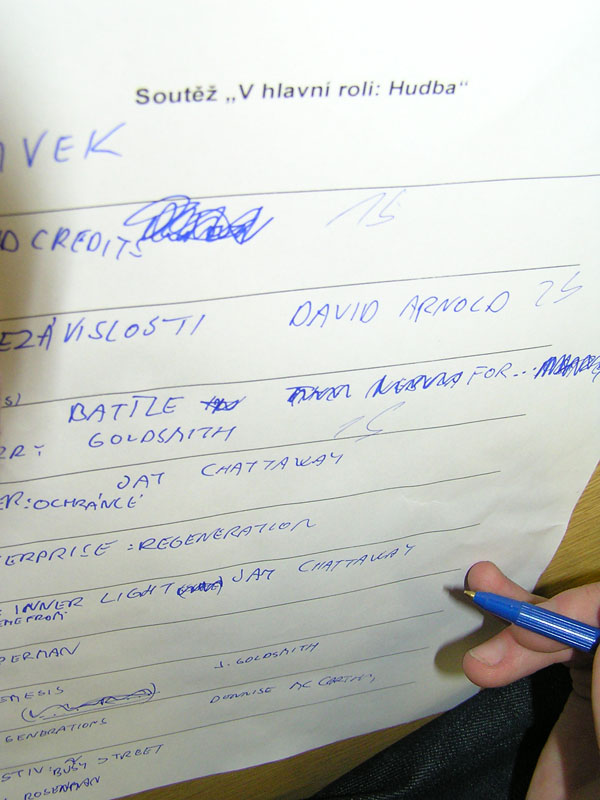 Soutěž „V hlavní roli: Hudba“
VEK
D CREDITS 1S
EZÁVISLOSTI DAVID ARNOLD 2S
S)
BATTLE FOR...
ER: GOLDSMITH 1S
JAY CHATTAWAY
ER: OCHRÁNCE
ERPRISE: REGENERATION
INNER LIGHT JAY CHATTAWAY
PERMAN
EMESIS J. GOLDSMITH
GENERATIONS DENNISE MC CARTHY
STIV: BUSY STREET
ROSENMAN